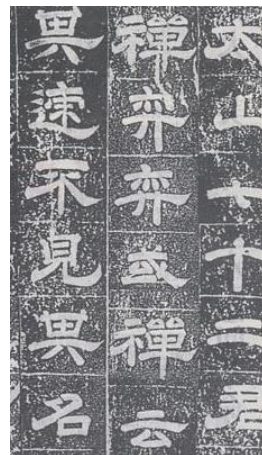 太山七十二君
禪弈弈或禪云
其速不見其名